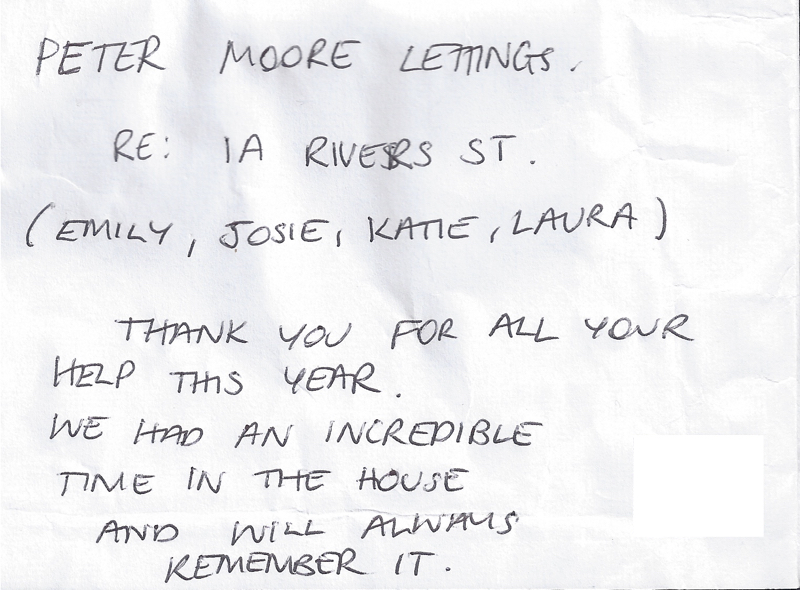 PETER MOORE LETTINGS.
RE: 1A RIVERS ST.
(EMILY, JOSIE, KATIE, LAURA)
THANK YOU FOR ALL YOUR
HELP THIS YEAR.
WE HAD AN INCREDIBLE
TIME IN THE HOUSE
AND WILL ALWAYS
REMEMBER IT.